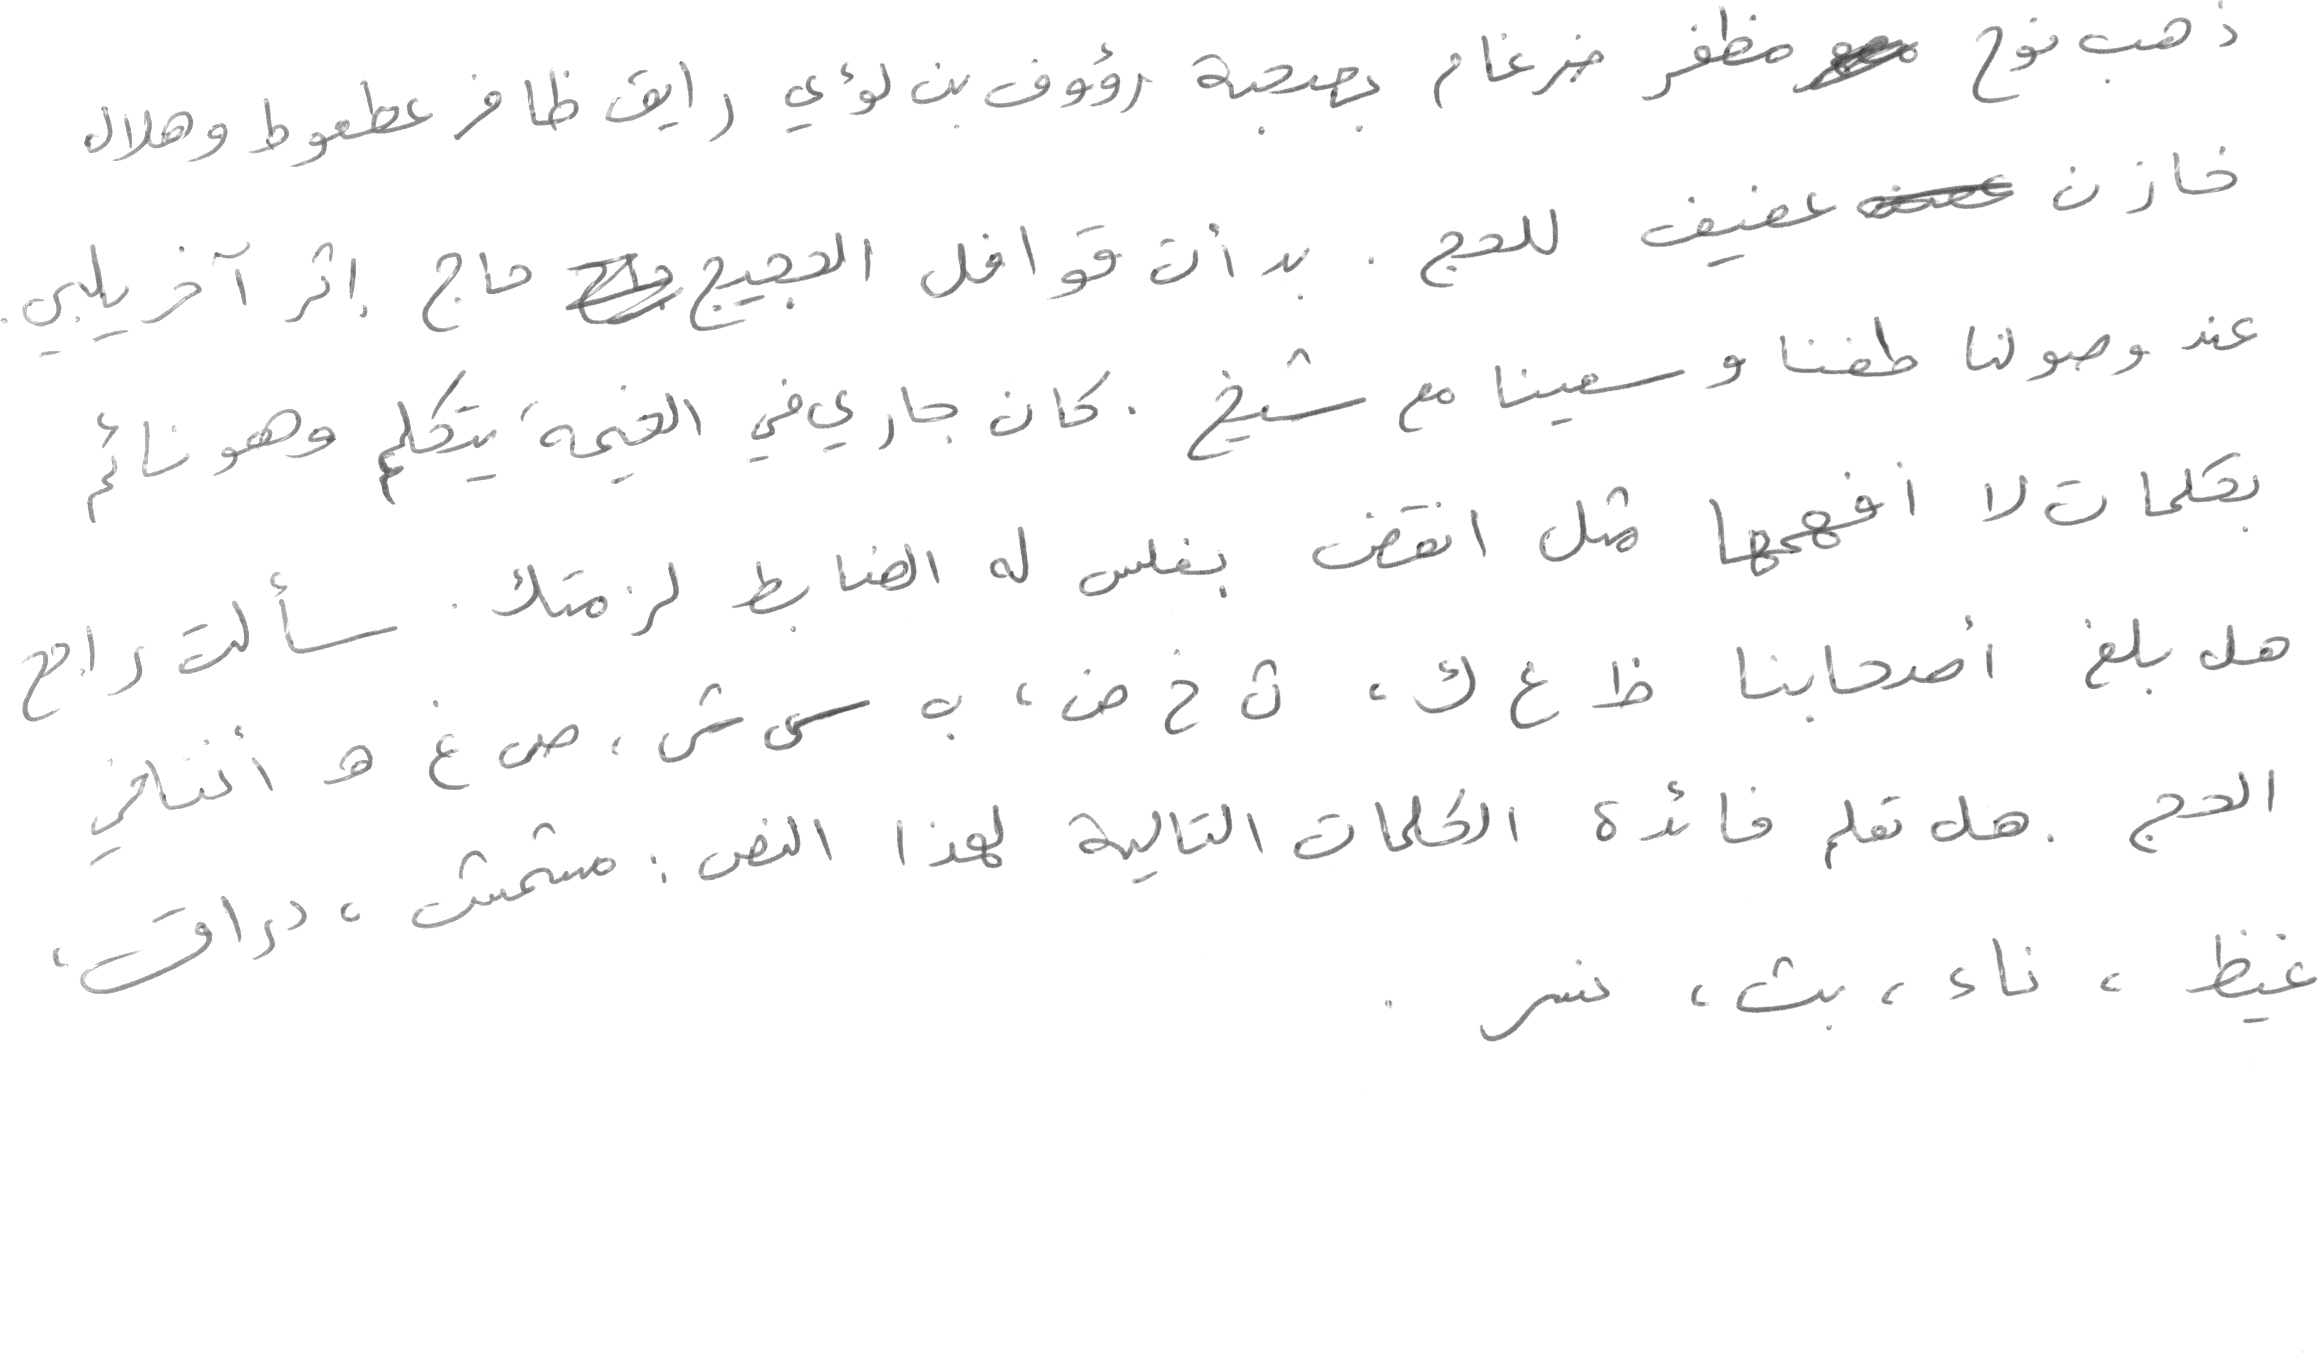 ذهب نوح مظفر ضرغام بصحبة رؤوف بن لؤي رايق ظافر عطعوط وهلال
خازن عفيف للحج . بدأت قوافل الحجيج حاج إثر آخر يلبي .
عند وصولنا طفنا وسعينا مع شيخ . كان جاري في الخيمة يتكلم وهو نائم
بكلمات لا أفهمها مثل انقض بغلس له الضابط لزمتك . سألت راجح
هل بلغ أصحابنا ظ ع ك ، ث خ ض ، ب س ش ، ص غ ه أننا في
الحج . هل تعلم فائدة الكلمات التالية لهذا النص : مشمش ، دراق ،
غيظ ، ناء ، بث ، نسر .